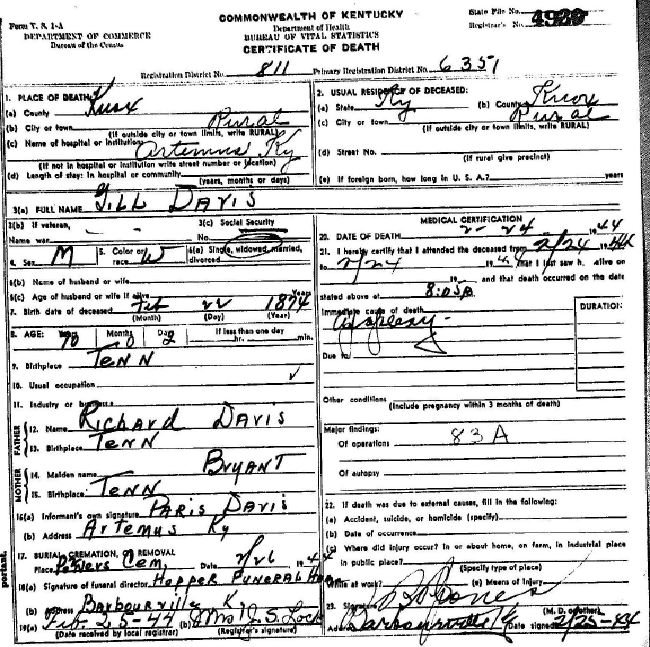 Form V. S. 1-A
DEPARTMENT OF COMMERCE
Bureau of the Census
COMMONWEALTH OF KENTUCKY
Department of Health
BUREAU OF VITAL STATISTICS
CERTIFICATE OF DEATH
State File No.
Registrar's No.
Registration District No. 811 Primary Registration District No. 6351
1. PLACE OF DEATH:
(a) County Knox
(b) City or town Rural
(If outside city or town limits, write RURAL)
(c) Name of hospital or institution: Artemus Ky
(If not in hospital or institution write street number or location)
(d) Length of stay: In hospital or community
(years, months or days)
2. USUAL RESIDENCE OF DECEASED:
(a) State Ky (b) County Knox
(c) City or town Rural
(If outside city or town limits, write RURAL)
(d) Street No.
(If rural give precinct)
(e) If foreign born, how long in U. S. A.? years
3(a) FULL NAME Gill Davis
3(b) If veteran,
Name war
3(c) Social Security
No.
4. Sex M 5. Color or race W 6(a) Single, widowed, married, divorced
6(b) Name of husband or wife
6(c) Age of husband or wife if alive Years
7. Birth date of deceased Feb 22 1874
(Month) (Day) (Year)
8. AGE: Years 70 Months 0 Days 2 If less than one day
hr. min.
9. Birthplace Tenn
10. Usual occupation
11. Industry or business
FATHER
12. Name Richard Davis
13. Birthplace Tenn
MOTHER
14. Maiden name Bryant
15. Birthplace Tenn
16(a) Informant's own signature Paris Davis
(b) Address Artemus Ky
17. BURIAL, CREMATION, OR REMOVAL
Place Powers Cem, Date 2/26 1944
18(a) Signature of funeral director Hopper Funeral Home
(b) Address Barbourville Ky
19(a) Feb. 25-44 (b) Mrs J. S. Lock
(Date received by local registrar) (Registrar's signature)
MEDICAL CERTIFICATION
20. DATE OF DEATH 2-24 1944
21. I hereby certify that I attended the deceased from 2/24 1944
to 2/24 1944 that I last saw h. alive on
19 and that death occurred on the date
stated above at 8:05A
Immediate cause of death DURATION:
Apoplexy
Due to
Other conditions
(Include pregnancy within 3 months of death)
Major findings:
Of operations 83A
Of autopsy
22. If death was due to external causes, fill in the following:
(a) Accident, suicide, or homicide (specify)
(b) Date of occurrence
(c) Where did injury occur? In or about home, on farm, in industrial place
in public place?
(Specify type of place)
While at work? (e) Means of injury
23. Signature Jones
(M. D. or other)
Address Barbourville Ky Date signed 2/25-44
portant.